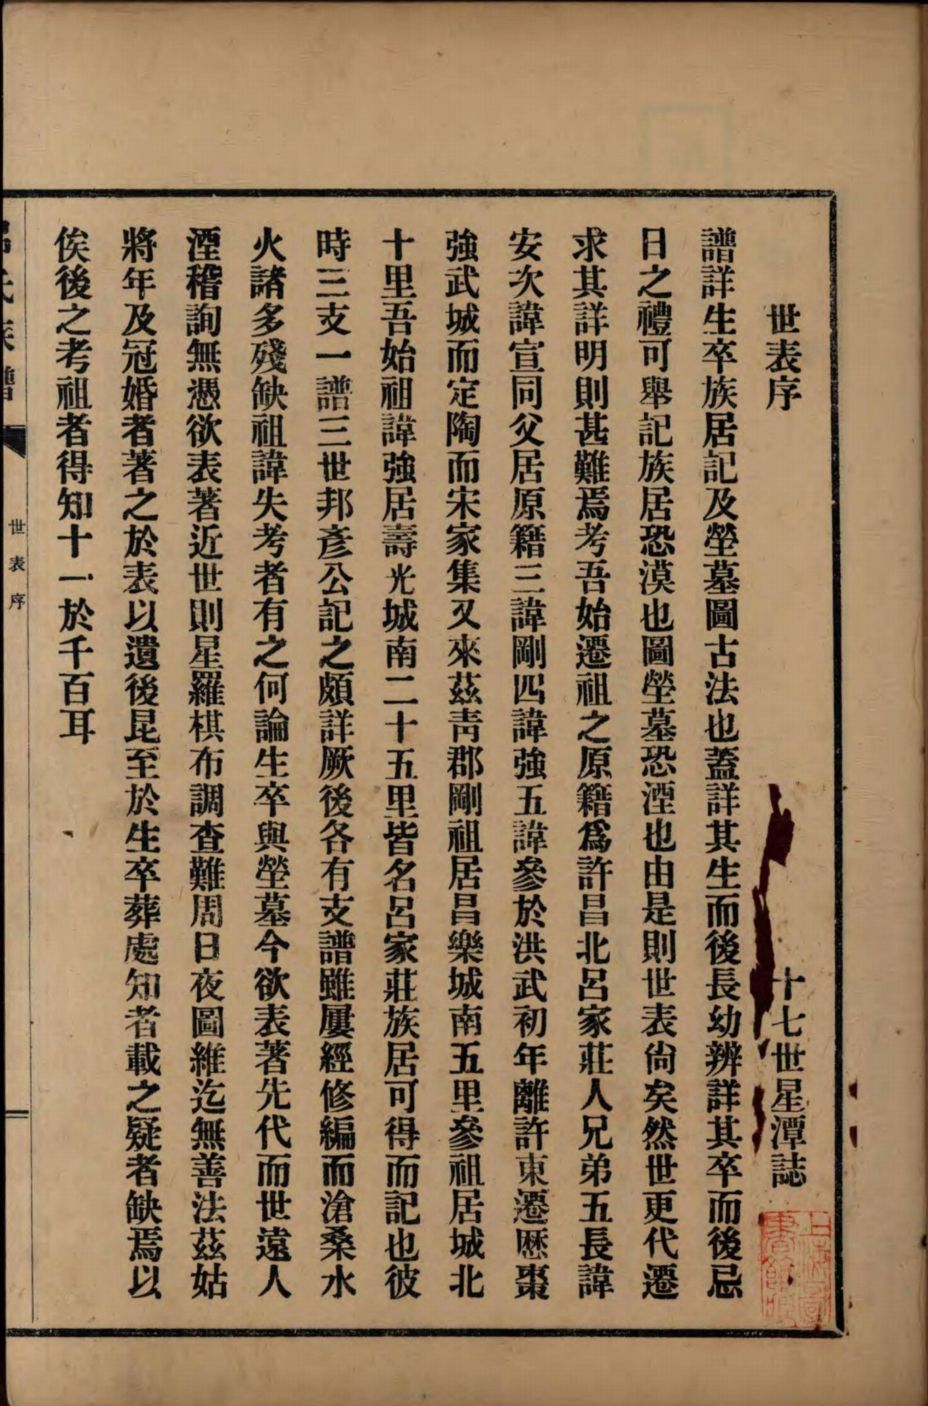 世表序
十七世星潭誌
譜詳生卒族居記及塋墓圖古法也蓋詳其生而後長幼辨詳其卒而後忌
日之禮可舉記族居恐漠也圖塋墓恐湮也由是則世表尙矣然世更代遷
求其詳明則甚難焉考吾始遷祖之原籍爲許昌北呂家莊人兄弟五長諱
安次諱宣同父居原籍三諱剛四諱強五諱參於洪武初年離許東遷歷棗
強武城而定陶而宋家集又來茲靑郡剛祖居昌樂城南五里參祖居城北
十里吾始祖諱強居壽光城南二十五里皆名呂家莊族居可得而記也彼
時三支一譜三世邦彥公記之頗詳厥後各有支譜雖屢經修編而滄桑水
火諸多殘缺祖諱失考者有之何論生卒與塋墓今欲表著先代而世遠人
湮稽詢無憑欲表著近世則星羅棋布調查難周日夜圖維迄無善法茲姑
將年及冠婚者著之於表以遺後昆至於生卒葬處知者載之疑者缺焉以
俟後之考祖者得知十一於千百耳
氏族譜
世表序
上海圖書館藏